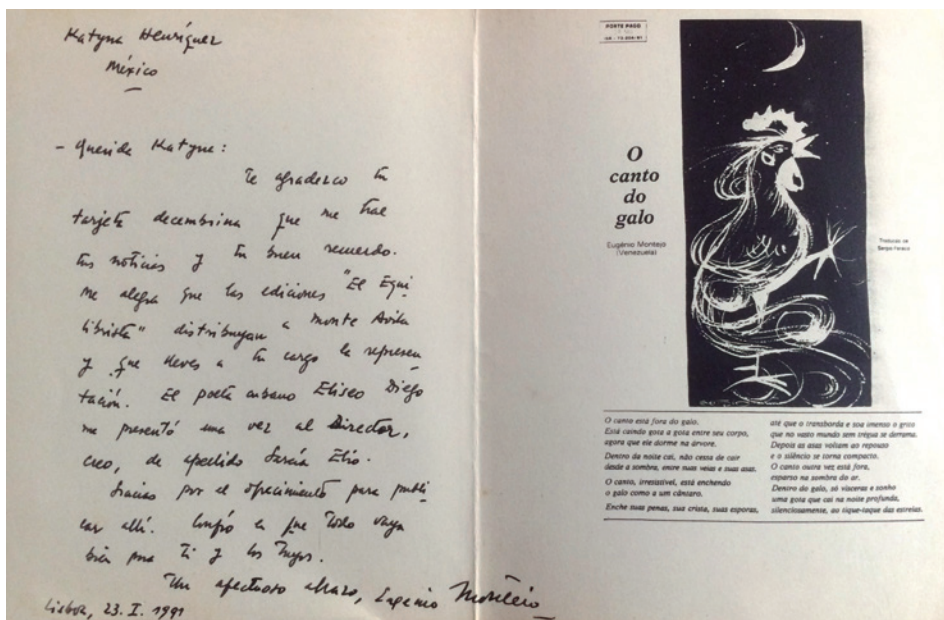 Katyna Henríquez
México
- Querida Katyna:
Te agradezco tu
tarjeta decembrina que me trae
tus noticias y tu buen recuerdo.
me alegra que las ediciones "El Equi
librista" distribuyan a monte Avila
y que lleves a tu cargo la represen
tación. El poeta cubano Eliseo Diego
me presentó una vez al Director,
creo, de apellido García Elío.
Gracias por el ofrecimiento para publi
car allí. Confío en que todo vaya
bien para ti y los tuyos.
Un afectuoso abrazo, Eugenio Montejo
Lisboa, 23.I.1991
PORTE PAGO
O
canto
do
galo
Eugénio Montejo
(Venezuela)
Tradução de
Sergio Faraco
O canto está fora do galo.
Está caindo gota a gota entre seu corpo,
agora que ele dorme na árvore.
Dentro da noite cai, não cessa de cair
desde a sombra, entre suas veias e suas asas.
O canto, irresistível, está enchendo
o galo como a um cântaro.
Enche suas penas, sua crista, suas esporas,
até que o transborda e soa imenso o grito
que no vasto mundo sem trégua se derrama.
Depois as asas voltam ao repouso
e o silêncio se torna compacto.
O canto outra vez está fora,
esparso na sombra do ar.
Dentro do galo, só vísceras e sonho
uma gota que cai na noite profunda,
silenciosamente, ao tique-taque das estrelas.